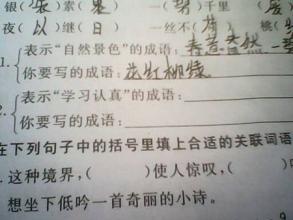 银( )素( ) 一( )千里 (
夜(以)继(日) 一丝不( ) 桃(
1. 表示“自然景色”的成语：春意盎然 一
你要写的成语：花红柳绿
2. 表示“学习认真”的成语：
你要写的成语：
在下列句子中的括号里填上合适的关联词语
这种境界，( )使人惊叹，( )
想坐下低吟一首奇丽的小诗。